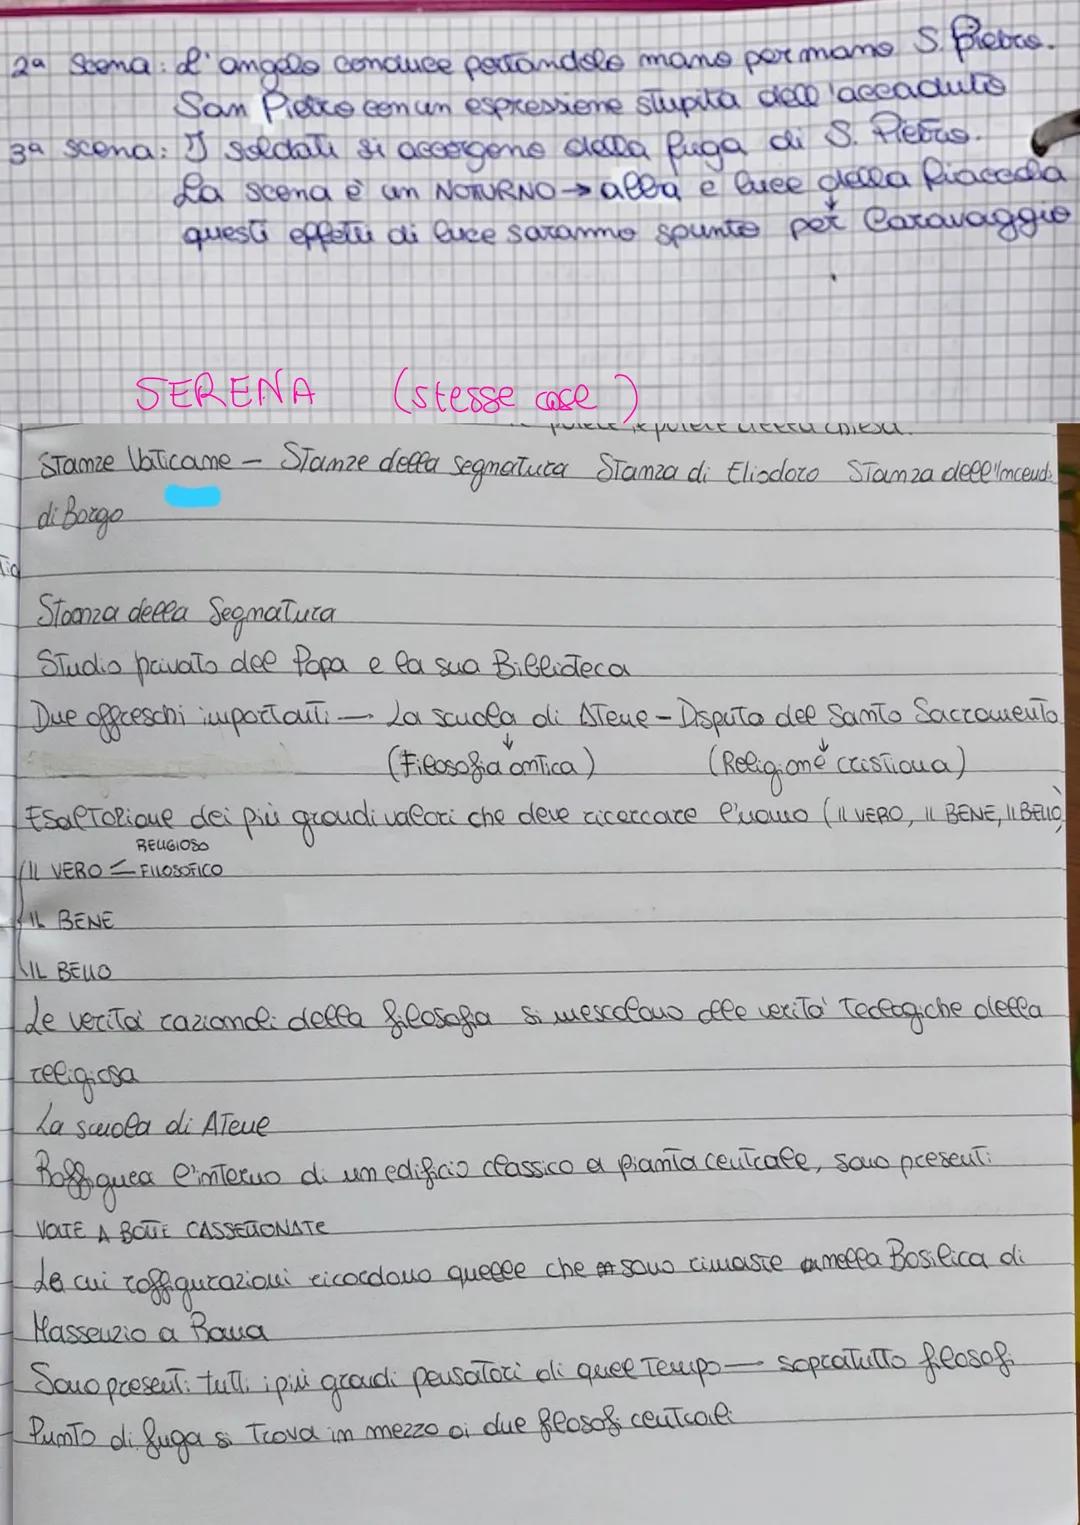 2ª Scena: L'angelo conduce portandolo mano per mano S. Pietro.
San Pietro con un espressione stupita dell'accaduto
3ª scena: I soldati si accorgono della fuga di S. Pietro.
La scena è un NOTURNO → alba e luce della fiaccola
questi effetti di luce saranno spunto per Caravaggio
SERENA (stesse cose)
Stanze Vaticane - Stanze della segnatura Stanza di Eliodoro Stanza dell'incendi
di Borgo
Stanza della Segnatura
Studio privato del Papa e la sua Biblioteca
Due affreschi importanti — La scuola di Atene - Disputa del Santo Sacramento
(Filosofia antica) (Religione cristiana)
Esaltazione dei più grandi valori che deve ricercare l'uomo (IL VERO, IL BENE, IL BELLO)
RELIGIOSO
IL VERO < FILOSOFICO
IL BENE
IL BELLO
Le verità razionali della filosofia si mescolano alle verità teologiche della
religiosa
La scuola di Atene
Raffigura l'interno di un edificio classico a pianta centrale, sono presenti
VOLTE A BOTTE CASSETTONATE
Le cui raffigurazioni ricordano quelle che sono rimaste nella Basilica di
Massenzio a Roma
Sono presenti tutti i più grandi pensatori di quel tempo — sopratutto filosofi
Punto di fuga si trova in mezzo ai due filosofi centrali